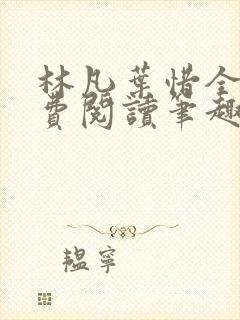 林凡葉惜全
費閱讀筆趣
韞寧